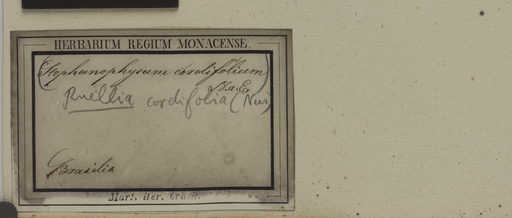 HERBARIUM REGIUM MONACENSE.
(Stephanophysum cordifolium)
Ruellia cordifolia (Nees)
Brasilia
Mart. iter. Brasil.